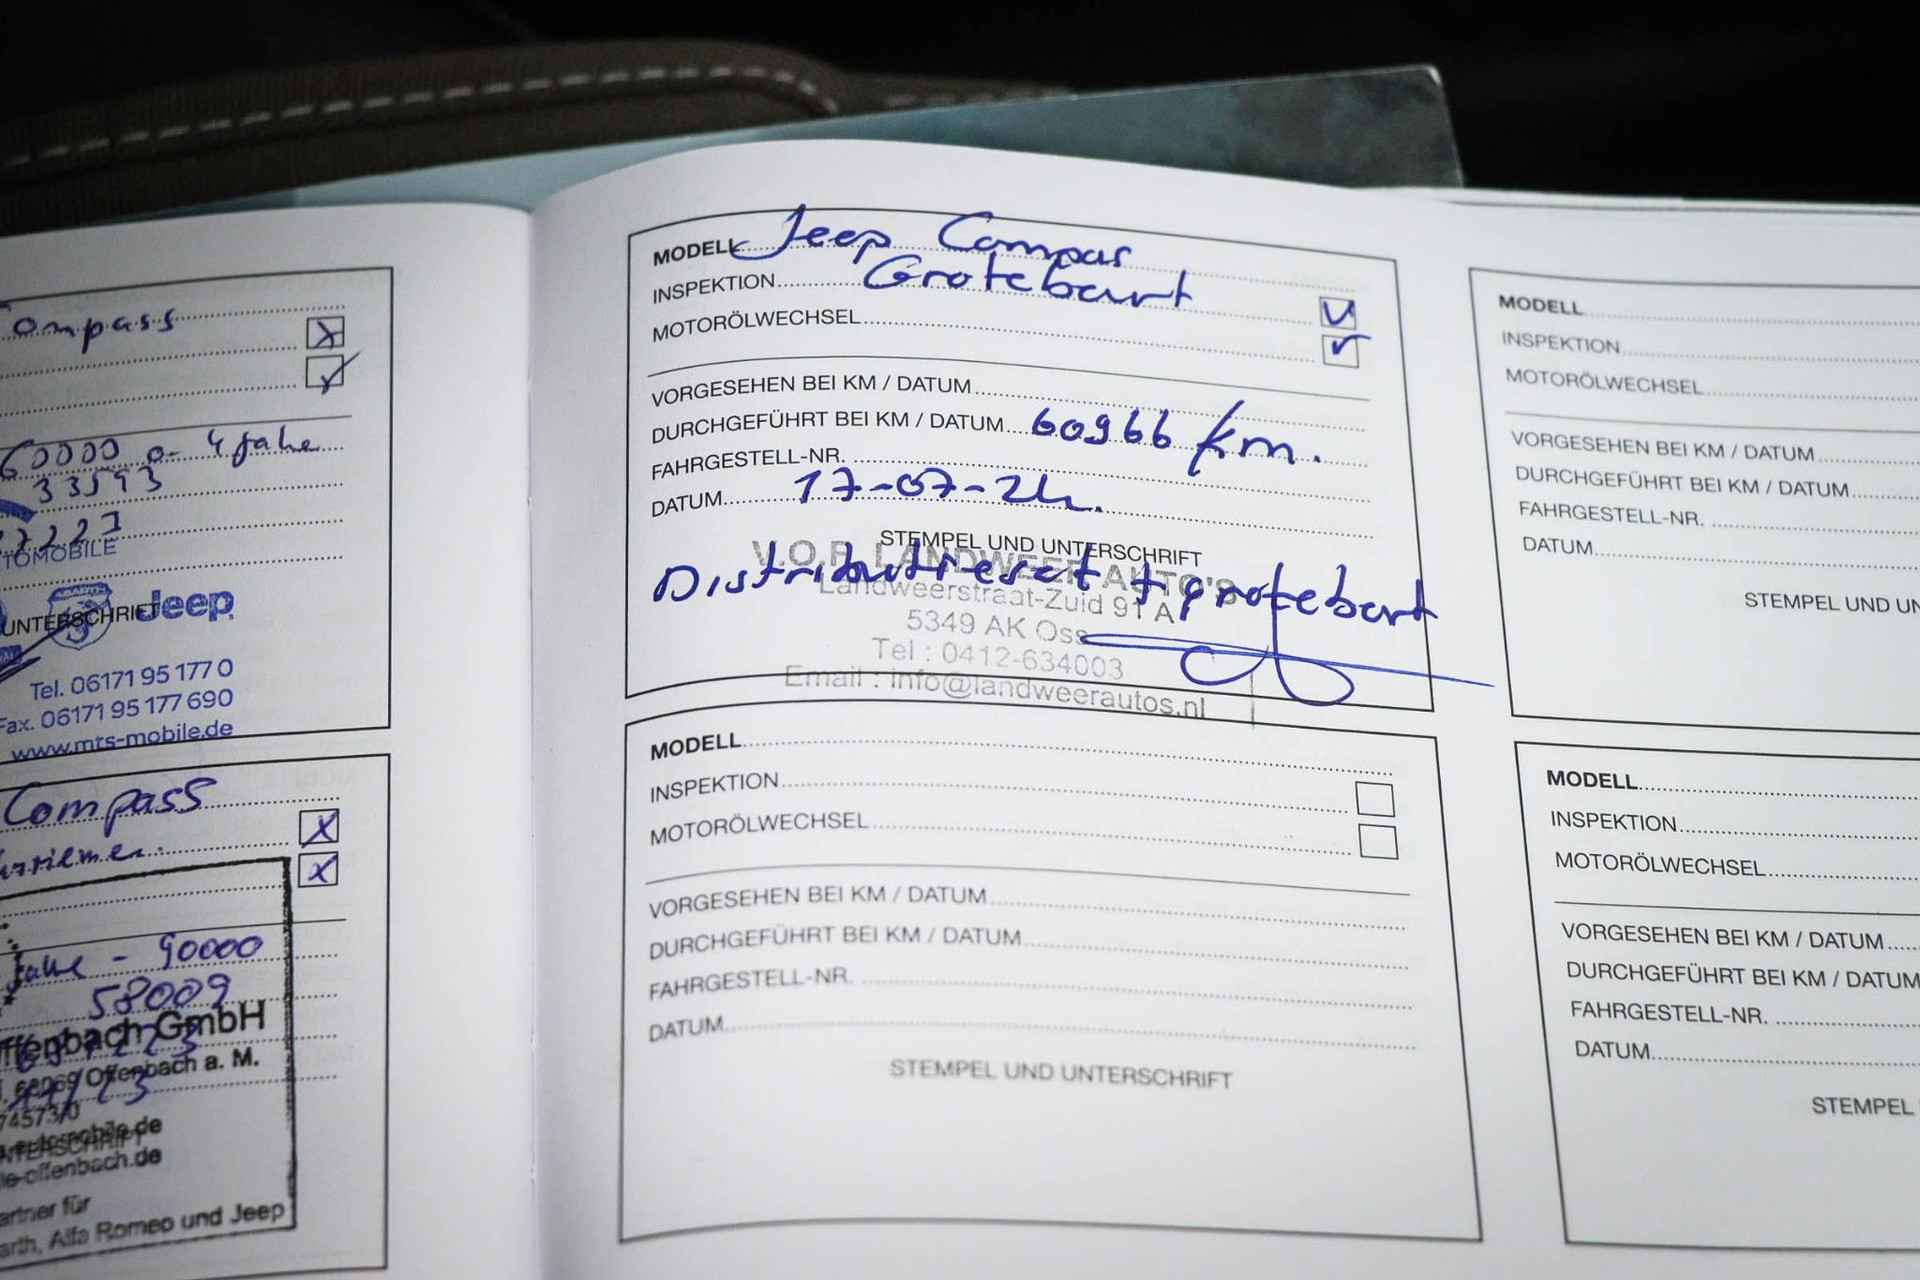 ompass
60000 o- 4 Jahe
33593
TOMOBILE
UNTERSCHRIFT Jeep
Tel. 06171 95 177 0
Fax. 06171 95 177 690
www.mts-mobile.de
Compass
Jahe - 90000
58009
ffenbach GmbH
Offenbach a. M.
74573/0
automobile.de
le-offenbach.de
artner für
arth, Alfa Romeo und Jeep
MODELL Jeep Compas
INSPEKTION Grotebeurt
MOTORÖLWECHSEL
VORGESEHEN BEI KM / DATUM
DURCHGEFÜHRT BEI KM / DATUM 60966 km.
FAHRGESTELL-NR.
DATUM 17-07-24.
STEMPEL UND UNTERSCHRIFT
V.O.F. LANDWEER AUTO'S
Distributieset + grotebeurt
Landweerstraat-Zuid 91 A
5349 AK Oss
Tel : 0412-634003
Email : info@landweerautos.nl
MODELL
INSPEKTION
MOTORÖLWECHSEL
VORGESEHEN BEI KM / DATUM
DURCHGEFÜHRT BEI KM / DATUM
FAHRGESTELL-NR.
DATUM
STEMPEL UND UNTERSCHRIFT
MODELL
INSPEKTION
MOTORÖLWECHSEL
VORGESEHEN BEI KM / DATUM
DURCHGEFÜHRT BEI KM / DATUM
FAHRGESTELL-NR.
DATUM
STEMPEL UND UN
MODELL
INSPEKTION
MOTORÖLWECHSEL
VORGESEHEN BEI KM / DATUM
DURCHGEFÜHRT BEI KM / DATUM
FAHRGESTELL-NR.
DATUM
STEMPEL